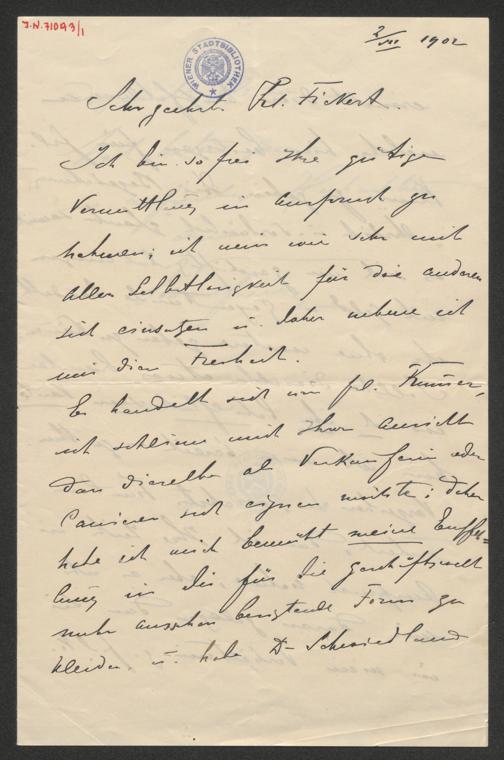 J.N. 71093/1
WIENER STADTBIBLIOTHEK
2/VII 1902
Sehr geehrt. Frl. Fickert.
Ich bin so frei Ihre gütige
Vermittlung in Anspruch zu
nehmen; ich weiss wie sehr mit
aller Selbstlosigkeit für die anderen
sich einsetzen u. daher nehme ich
mir diese Freiheit.
Es handelt sich um frl.
ich schliesse mich Ihrer Ansicht
dass dieselbe als Verkäuferin oder
Cassierin sich eignen möchte; daher
habe ich mich bemüht meine Empfeh=
lung in die für die Geschäftswelt
mehr Form zu
kleiden u. habe Dr Schwiedland